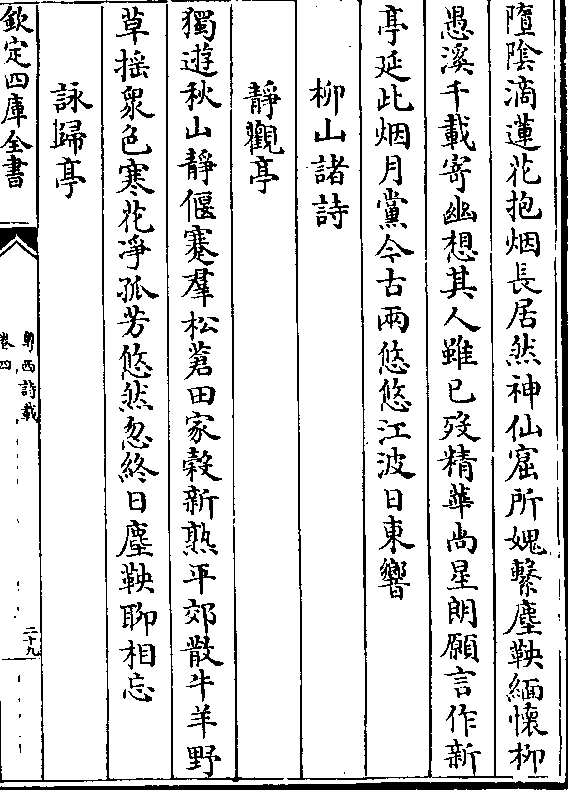 墮陰滴蓮花抱烟長居然神仙窟所媿繫塵鞅緬懷柳
愚溪千載寄幽想其人雖已歿精華尚星朗願言作新
亭延此烟月黨今古兩悠悠江波日東響
柳山諸詩
靜觀亭
獨遊秋山靜偃蹇羣松蒼田家穀新熟平郊散牛羊野
草揺衆色寒花凈孤芳悠然忽終日塵鞅聊相忘
詠歸亭
欽定四庫全書
粤西詩載
卷四
二十九